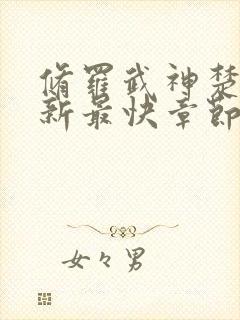 脩羅武神楚
新最快章節
女々男